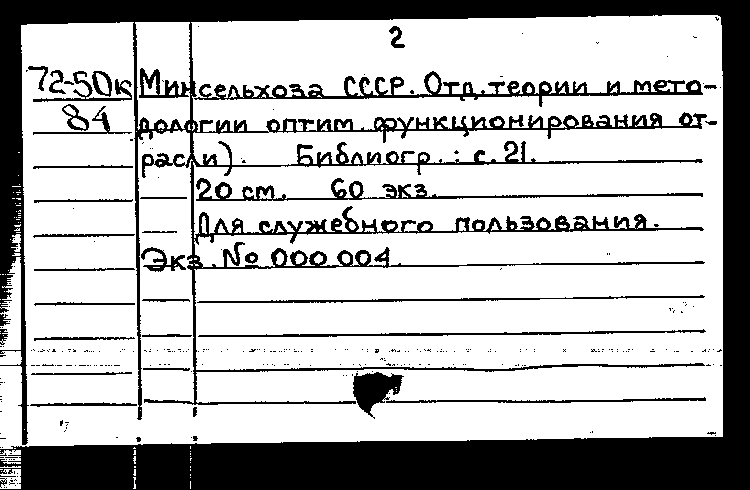 2
72-50к Минсельхоза СССР. Отд. теории и мето-
84 дологии оптим. функционирования от-
расли). Библиогр.: с. 21.
20 см. 60 экз.
Для служебного пользования.
Экз. № 000 004.